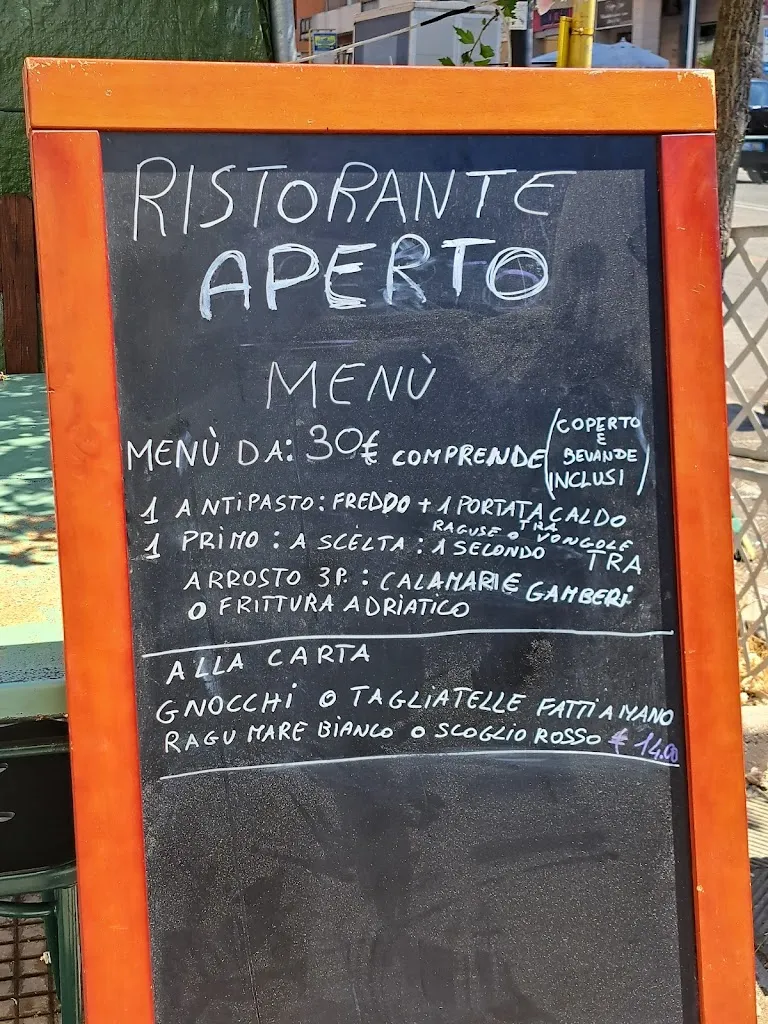 RISTORANTE
APERTO
MENÙ
MENÙ DA: 30€ COMPRENDE (COPERTO
E
BEVANDE
INCLUSI)
1 ANTIPASTO: FREDDO + 1 PORTATA CALDO
1 PRIMO: A SCELTA: TRA
RAGUSE O VONGOLE
1 SECONDO TRA
ARROSTO 3P.: CALAMARI E GAMBERI
O FRITTURA ADRIATICO
ALLA CARTA
GNOCCHI O TAGLIATELLE FATTI A MANO
RAGU MARE BIANCO O SCOGLIO ROSSO € 14.00